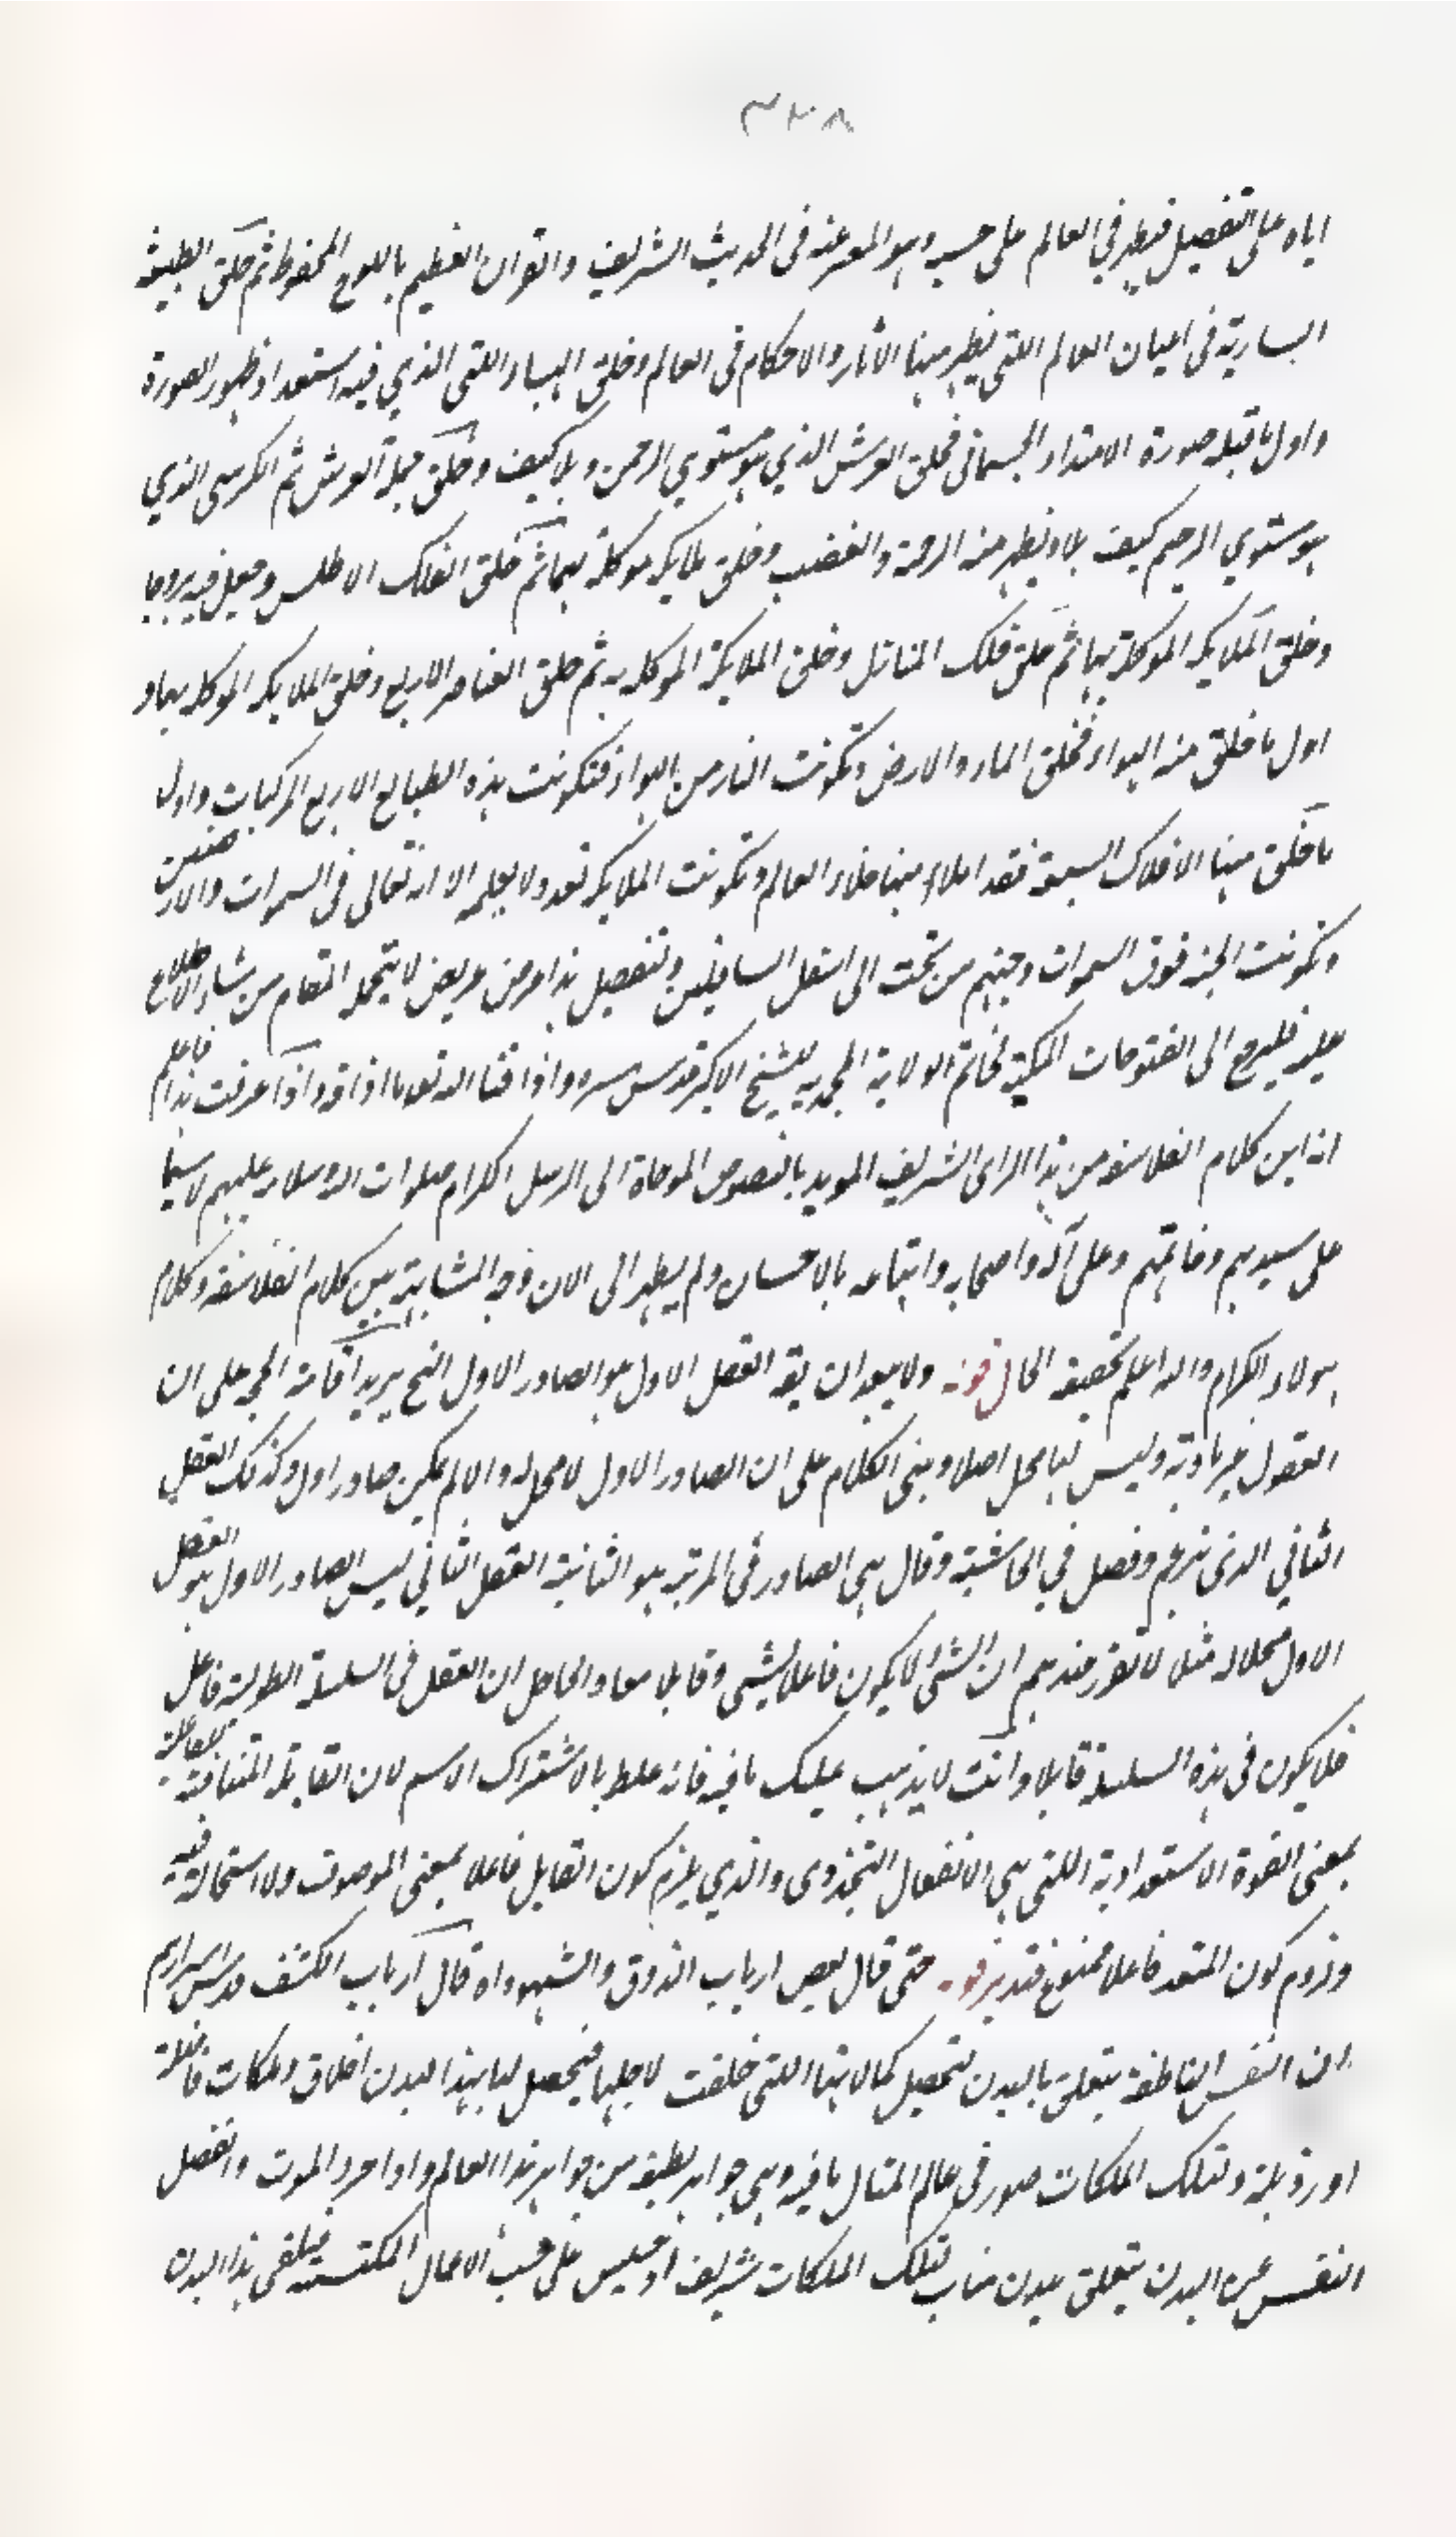 ٣٢٨
اياه على التفصيل فيظهر في العالم على حسبه وهو المعبر عنه في الحديث الشريف والقرآن العظيم باللوح المحفوظ ثم خلق الطبيعة
السارية في اعيان العالم اللتي يظهر منها الاثار والاحكام في العالم وخلق الهباء اللتي الذي فيه استعداد ظهور الصورة
واول ما قبله صورة الامتداد الجسماني فخلق العرش الذي هو مستوي الرحمن وبلا كيف وخلق حملة العرش ثم الكرسي الذي
هو مستوي الرحيم كيف بلا ويظهر منه الرحمة والغضب وخلق ملايكه موكلة بهما ثم خلق الفلك الاطلس وجعل فيه بروجا
وخلق الملايكه الموكلة بها ثم خلق فلك المنازل وخلق الملايكة الموكله به ثم خلق العناصر الاربع وخلق الملايكه الموكله بها و
اول ما خلق منه الهواء فخلق الماء والارض وتكونت النار من الهواء فتكونت هذه الطبايع الاربع المركبات واول
ما خلق منها الافلاك السبعة فقد املاء منها خلاء العالم وتكونت الملايكه تعد ولا يعلمه الا الله تعالى في السموات والارضين
وتكونت الجنه فوق السموات وجهنم من تحت الى اسفل السافلين وتفصيل هذا عرض عريض لا يتحمله المقام من شاء الاطلاع
عليه فليرجع الى الفتوحات المكية لخاتم الولاية المحمديه للشيخ الاكبر قدس سره واذاقنا الله تعه ما اذاقه واذا عرفت هذا فاعلم
انه اين كلام الفلاسفه من هذا الراى الشريف المويد بالنصوص الموحاة الى الرسل الكرام صلوات الله وسلامه عليهم لا سيما
على سيدهم وخاتمهم وعلى آله واصحابه واتباعه بالاحسان ولم يظهر الى الان وجه المشابهة بين كلام الفلاسفه وكلام
هولاء الكرام والله اعلم بحقيقه الحال قوله ولا يبعد ان يقه العقل الاول هو الصادر الاول الخ يريد اقامة الحجه على ان
العقول غير مادية وليس لها محل اصلا ومبنى الكلام على ان الصادر الاول لا محل له والا لم يكن صادر اول وكذلك العقل
الثاني الذى نزعم وفصل في الحاشية وقال هي الصادر في المرتبه هو الثانية العقل الثاني ليس الصادر الاول هو العقل
الاول محلا له مثلا لا تقرر عندهم ان الشئ لا يكون فاعلا لشئ وقابلا معا والحاصل ان العقل في السلسلة الطولية فاعل
فلا يكون في هذه السلسلة قابلا وانت لا يذهب عليك ما فيه فانه غلط بالاشتراك الاسم لان القابلة المتنافية للفاعلة
بمعنى القوة الاستعدادية اللتى هي الانفعال التجددى والذي يلزم كون القابل فاعلا بمعنى الموصوف ولا استحالة فيه
ولزوم كون المتعد فاعلا ممنوع فتدبر قوله حتى قال بعض ارباب الذوق والشهود اه قال ارباب الكشف قدس اسرارهم
ان النفس الناطقه يتعلق بالبدن لتحصيل كمالاتها اللتى خلقت لاجلها فيحصل لها بهذا البدن اخلاق وملكات فاضلة
او رذيلة ولتلك الملكات صور في عالم المثال ما فيه وهي جواهر لطيفه من جواهر هذا العالم واذا جرد الموت وانفصل
النفس عن البدن يتعلق ببدن مناسب لتلك الملكات شريف او خسيس على حسب الاعمال المكتسبة فيلقى هذا البدن